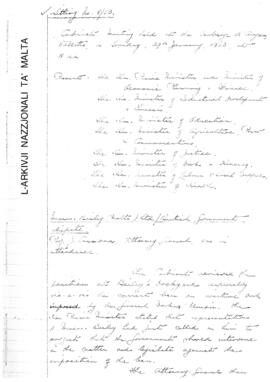 L-ARKIVJI NAZZJONALI TA' MALTA
Sitting No. 8/63.
Cabinet Meeting held at the Auberge d'Aragon
Valletta, on 29th January, 1963 at
Present: The Hon. Prime Minister and Minister of
Economic Planning & Finance.
The Hon. Minister of Industrial Development
& Tourism
The Hon. Minister of Education.
The Hon. Minister of Agriculture, Power
& Communications
The Hon. Minister of Justice.
The Hon. Minister of Works & Housing.
The Hon. Minister of Labour & Social Welfare.
The Hon. Minister of Health.
Messrs. Bailey (Malta) Ltd/British Government
dispute
Attorney General was in
attendance
The Cabinet reviewed the
position at Bailey's Dockyard especially
vis-a-vis the current ban on overtime
imposed by the General Workers Union. The
Hon Prime Minister stated that representatives
of Messrs. Bailey had just called on him to
suggest that the Government should intervene
in the matter and legislate against the
imposition of the ban.
The Attorney General then